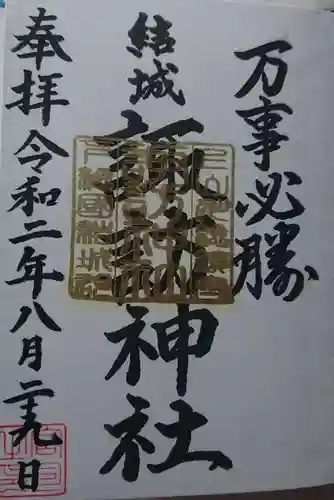 万事必勝
結城
諏訪神社
奉拝令和二年八月二十九日